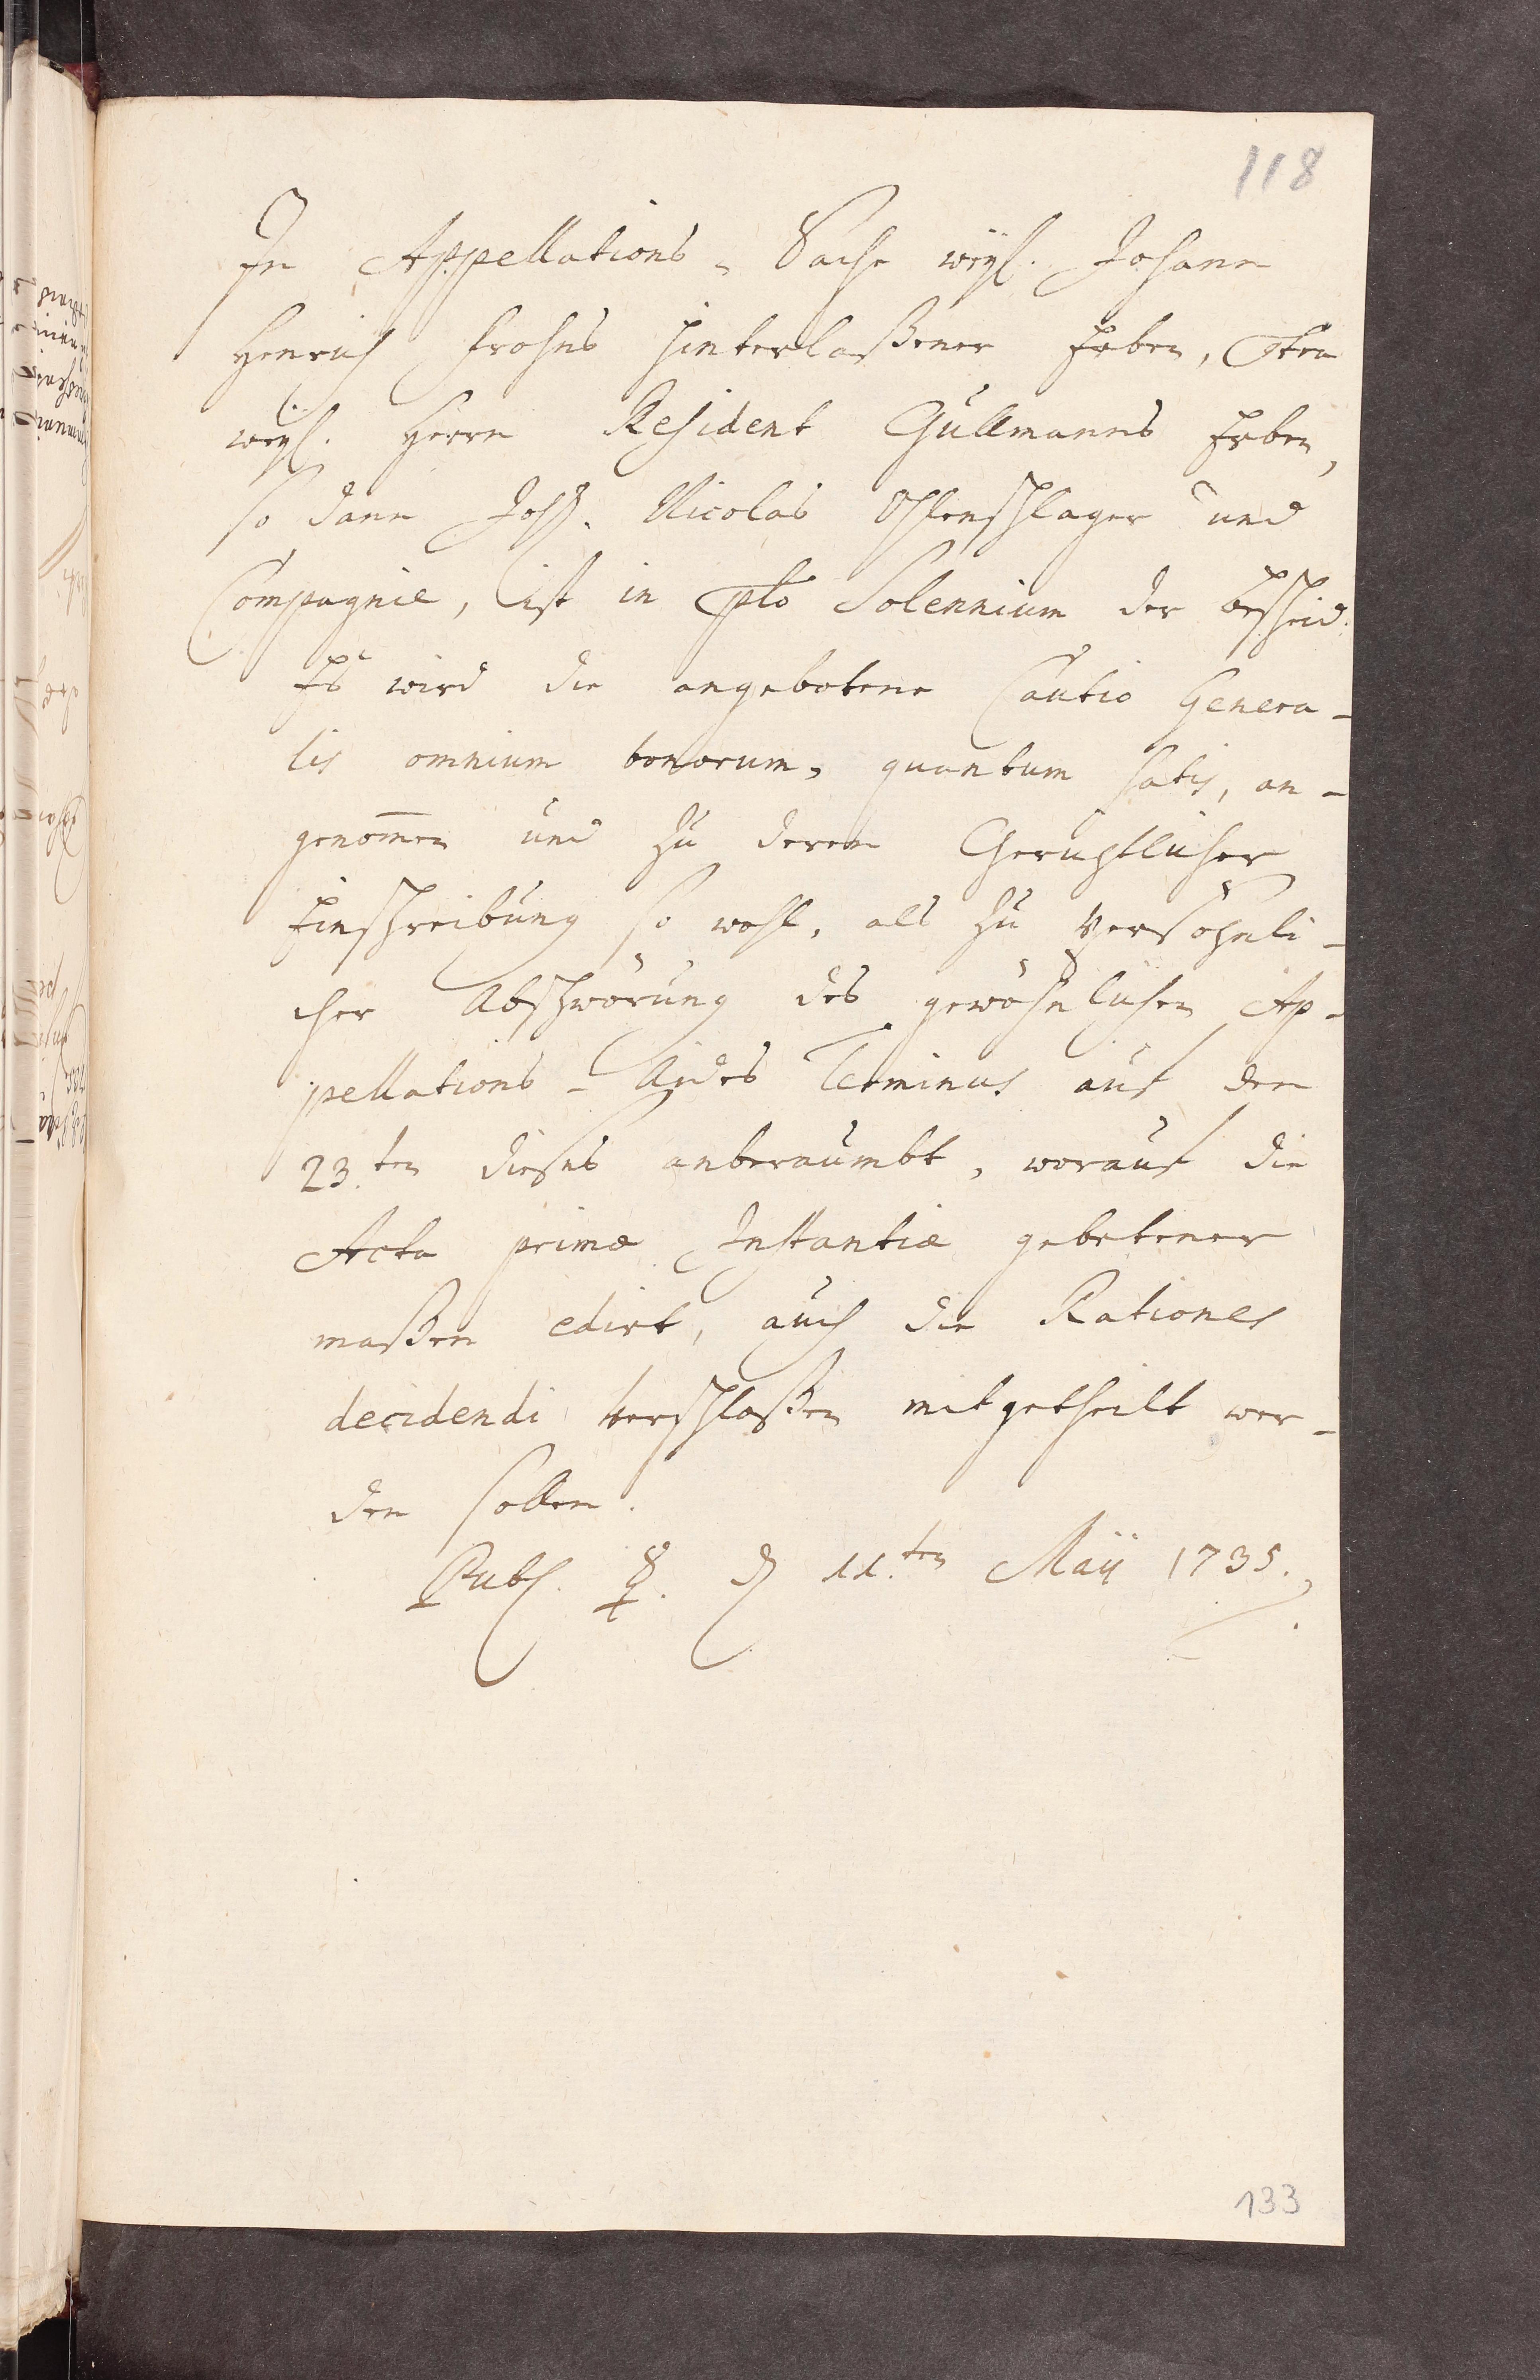 118
In Appellations-Sache weyl. Johann
Henrich Frohns hinterlaßener Erben, Ctra
weyl. Herrn Resident Gullmanns Erben,
so dann Joh. Nicolas Ohlenschlager und
Compagnie, ist in pto Solennium der Bescheid:
Es wird die angebotene Cautio Genera-
lis omnium bonorum, quantum satis, an-
genom̄en und zu deren Gerichtlicher
Einschreibung so wohl, als zu persöhnli-
cher Abschwörung des gewöhnlichen Ap-
pellations-Aides Terminus auf den
23.ten dieses anberaumbt, worauf die
Acta primæ Instantiæ gebetener
maßen edirt, auch die Rationes
decidendi verschloßen mitgetheilt wer-
den sollen.
Publ. ☿. d 11.ten Maÿ 1735.
133